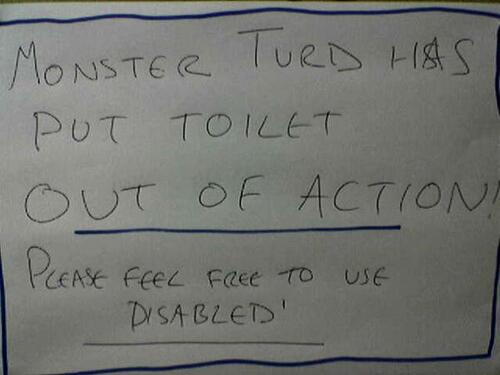 MONSTER TURD HAS
PUT TOILET
OUT OF ACTION!
PLEASE FEEL FREE TO USE
DISABLED'